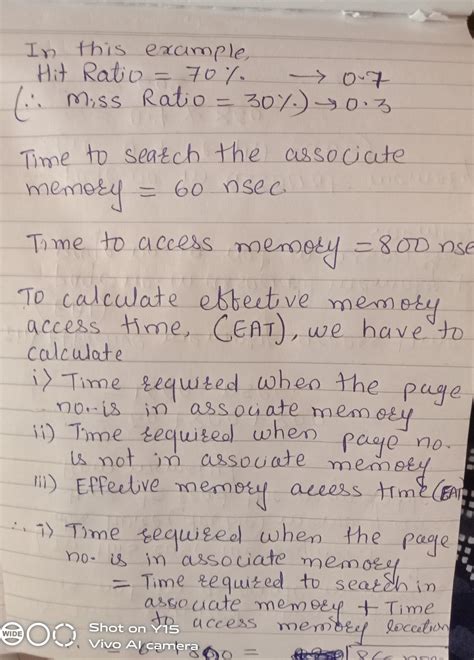 In this example,
Hit Ratio = 70%. → 0.7
(∴ Miss Ratio = 30%.) → 0.3
Time to search the associate
memory = 60 nsec.
Time to access memory = 800 nse
To calculate effective memory
access time, (EAT), we have to
calculate
i) Time required when the page
no. is in associate memory
ii) Time required when page no.
is not in associate memory
iii) Effective memory access time (EAT
∴ i) Time required when the page
no. is in associate memory
= Time required to search in
associate memory + Time
to access memory location
WIDE
Shot on Y15
Vivo AI camera